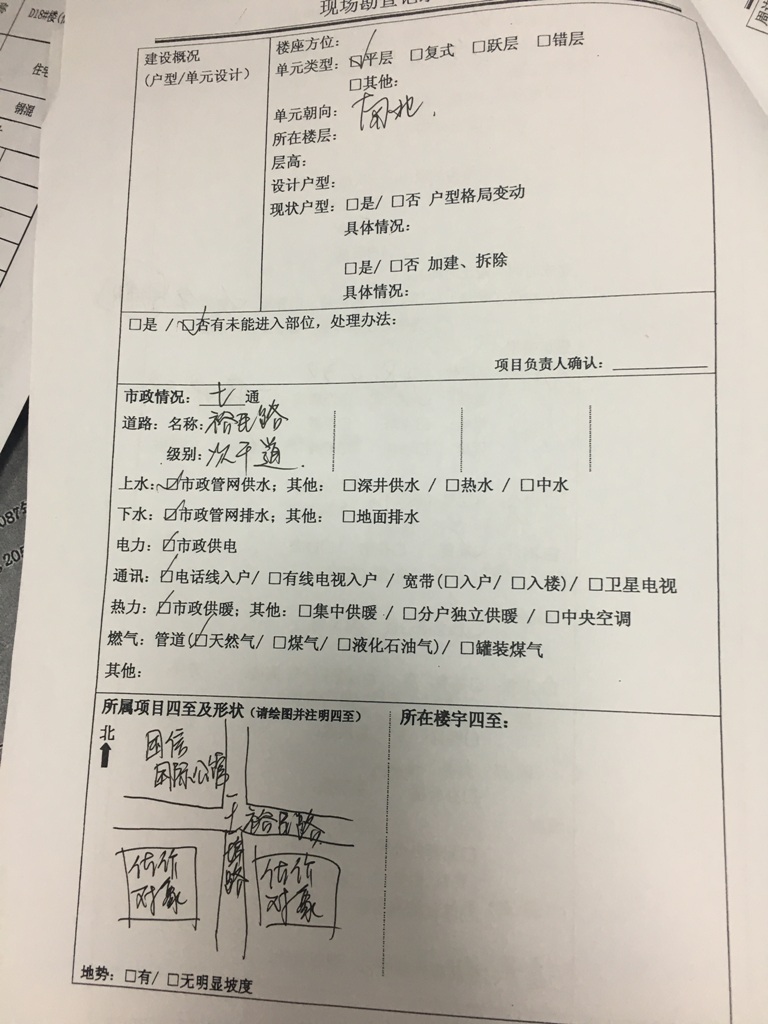 现场勘查记
D18#楼
住宅
钢混
建设概况
(户型/单元设计)
楼座方位:
单元类型: ☑平层 □复式 □跃层 □错层
□其他:
单元朝向: 南北
所在楼层:
层高:
设计户型:
现状户型: □是/ □否 户型格局变动
具体情况:
□是/ □否 加建、拆除
具体情况:
□是 / ☑否有未能进入部位, 处理办法:
项目负责人确认:
市政情况: 七 通
道路: 名称: 裕民路
级别: 次干道
上水: ☑市政管网供水; 其他: □深井供水 / □热水 / □中水
下水: ☑市政管网排水; 其他: □地面排水
电力: ☑市政供电
通讯: ☑电话线入户/ □有线电视入户 / 宽带(□入户/ □入楼)/ □卫星电视
热力: ☑市政供暖; 其他: □集中供暖 / □分户独立供暖 / □中央空调
燃气: 管道(☑天然气/ □煤气/ □液化石油气)/ □罐装煤气
其他:
所属项目四至及形状 (请绘图并注明四至)
所在楼宇四至:
北
国信
国际公馆
裕民路
估价
对象
估价
对象
地势: □有/ □无明显坡度